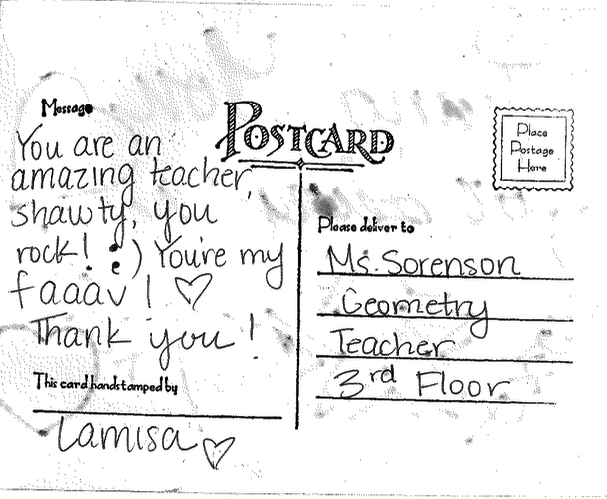 Message
You are an
amazing teacher,
shawty, you
rock! :) You're my
faaav! ♡
Thank you!
This card handstamped by
Lamisa ♡
POSTCARD
Place
Postage
Here
Please deliver to
Ms. Sorenson
Geometry
Teacher
3rd Floor